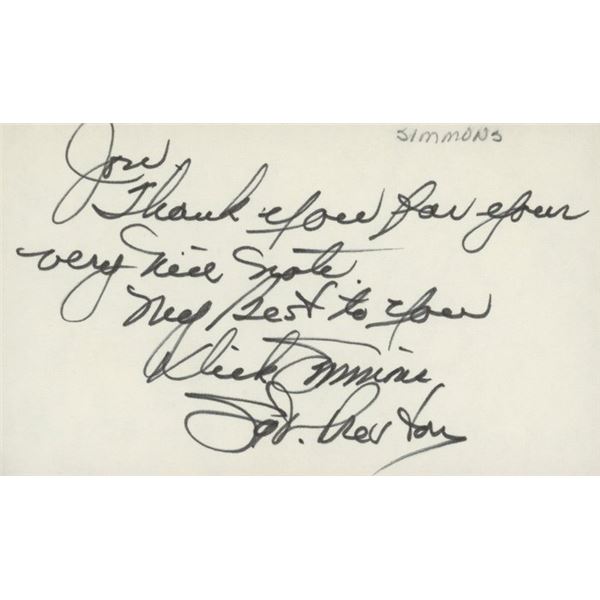 SIMMONS
Jon
Thank you for your
very nice note.
My Best to you
Dick Simmons
Sgt. Preston